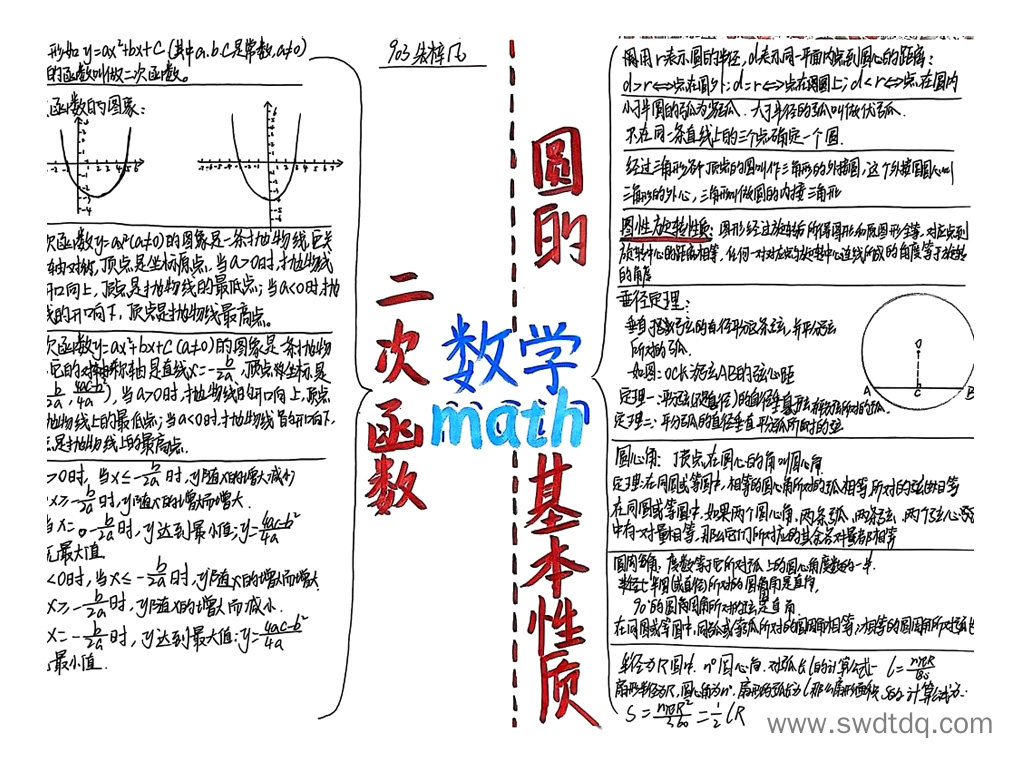 形如 y=ax²+bx+c (其中a.b.c是常数,a≠0)
的函数叫做二次函数。
函数的图象:
次函数y=ax²(a≠0)的图象是一条抛物线,它关
轴对称,顶点是坐标原点.当a>0时,抛物线
开口向上,顶点是抛物线的最低点;当a<0时,抛
线的开口向下,顶点是抛物线最高点。
次函数y=ax²+bx+c(a≠0)的图象是一条抛物
它的对称轴是直线x=-b/2a,顶点坐标是
4ac-b²/4a),当a>0时,抛物线的开口向上,顶点
物线上的最低点;当a<0时,抛物线 开口向下,
点是抛物线上的最高点.
>0时,当x≤-b/2a时,y随x的增大减小
x≥-b/2a时,y随x的增大而增大.
当x=-b/2a时,y达到最小值:y=4ac-b²/4a
无最大值.
<0时,当x≤-b/2a时,y随x的增大而增大
x≥-b/2a时,y随x的增大而减小.
x=-b/2a时,y达到最大值:y=4ac-b²/4a
最小值.
903
二次函数
数学
math
圆的
基本性质
用r表示圆的半径,d表示同一平面内点到圆心的距离:
d>r⇔点在圆外;d=r⇔点在圆上;d<r⇔点在圆内
小于半圆的弧为劣弧.大于半径的弧叫做优弧.
不在同一条直线上的三个点确定一个圆.
经过三角形各个顶点的圆叫作三角形的外接圆,这个外接圆圆心叫
三角形的外心,三角形叫做圆的内接三角形
圆性旋转性质:图形经过旋转所得图形和原图形全等.对应点到
旋转中心的距离相等,任何一对对应点与旋转中心连线所成的角度等于旋转
的角度
垂径定理:
垂直于弦的直径平分这条弦,并平分弦
所对的弧.
如图:OC长为弦AB的弦心距
O
A
C
B
定理一:平分弦(不是直径)的直径垂直于弦
定理二:平分弧的直径垂直平分弧所对的弦
圆心角:顶点在圆心的角叫圆心角.
定理:在同圆或等圆中,相等的圆心角所对的弧相等,所对的弦也相等
在同圆或等圆中.如果两个圆心角,两条弧,两条弦,两个弦心距
中有一对量相等,那么它们所对应的其余各对量都相等
度数等于它所对弧上的圆心角度数的一半.
半圆(或直径)所对的圆周角是直角.
90°的圆周角所对的弦是直
在同圆或等圆中,同弧或等弧所对的圆周角相等,相等的圆周角所对弧
半径为R圆中.n°圆心角.对弧长l的计算公式 l=nπR/180
扇形半径为R,圆心角为n°.扇形的弧长为l那么扇形面积S的计算公式为:
S=nπR²/360=1/2 lR
www.swdtdq.com